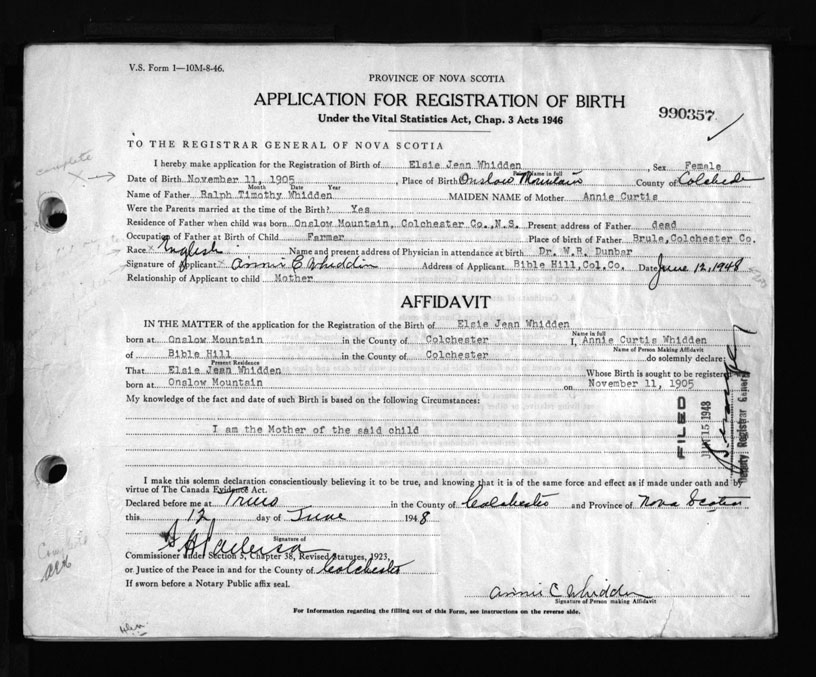 V.S. Form 1—10M-8-46.
PROVINCE OF NOVA SCOTIA
APPLICATION FOR REGISTRATION OF BIRTH
990357
Under the Vital Statistics Act, Chap. 3 Acts 1946
TO THE REGISTRAR GENERAL OF NOVA SCOTIA
complete
I hereby make application for the Registration of Birth of Elsie Jean Whidden, Sex Female
Name in full
Date of Birth November 11, 1905, Place of Birth Onslow Mountain County of Colchester
Month Date Year
Name of Father Ralph Timothy Whidden MAIDEN NAME of Mother Annie Curtis
Were the Parents married at the time of the Birth? Yes
Residence of Father when child was born Onslow Mountain, Colchester Co., N.S. Present address of Father dead
Occupation of Father at Birth of Child Farmer Place of birth of Father Brule, Colchester Co.
Race English Name and present address of Physician in attendance at birth Dr. W.R. Dunbar
Signature of Applicant Annie C Whidden Address of Applicant Bible Hill, Col. Co. Date June 12, 1948
Relationship of Applicant to child Mother
AFFIDAVIT
IN THE MATTER of the application for the Registration of the Birth of Elsie Jean Whidden
Name in full
born at Onslow Mountain in the County of Colchester I, Annie Curtis Whidden
Name of Person Making Affidavit
of Bible Hill in the County of Colchester do solemnly declare:
Present Residence
That Elsie Jean Whidden Whose Birth is sought to be registered
born at Onslow Mountain on November 11, 1905
My knowledge of the fact and date of such Birth is based on the following Circumstances:
I am the Mother of the said child
FILED
15 1948
Deputy Registrar General
I make this solemn declaration conscientiously believing it to be true, and knowing that it is of the same force and effect as if made under oath and by
virtue of The Canada Evidence Act.
Declared before me at Truro in the County of Colchester and Province of Nova Scotia
this 12 day of June 1948
Signature of
Commissioner under Section 5, Chapter 38, Revised Statutes, 1923,
or Justice of the Peace in and for the County of Colchester
If sworn before a Notary Public affix seal.
Annie C Whidden
Signature of Person making Affidavit
For Information regarding the filling out of this Form, see instructions on the reverse side.